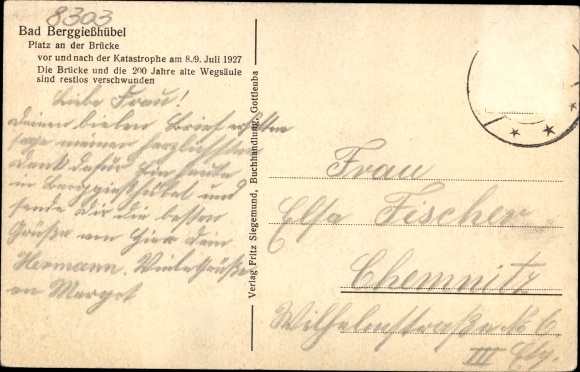 8303
Bad Berggießhübel
Platz an der Brücke
vor und nach der Katastrophe am 8./9. Juli 1927
Die Brücke und die 200 Jahre alte Wegsäule
sind restlos verschwunden
Liebe Frau!
Deinen lieben Brief erhalten
sage meinen herzlichsten
Dank dafür Bin heute
in Berggießhübel und
sende Dir die besten
Grüße von hier Dein
Hermann. Viele Grüße
an Margot
Verlag: Fritz Siegemund, Buchhandlung, Gottleuba
Frau
Elsa Fischer
Chemnitz
Wilhelmstraße No 6
III Etg.